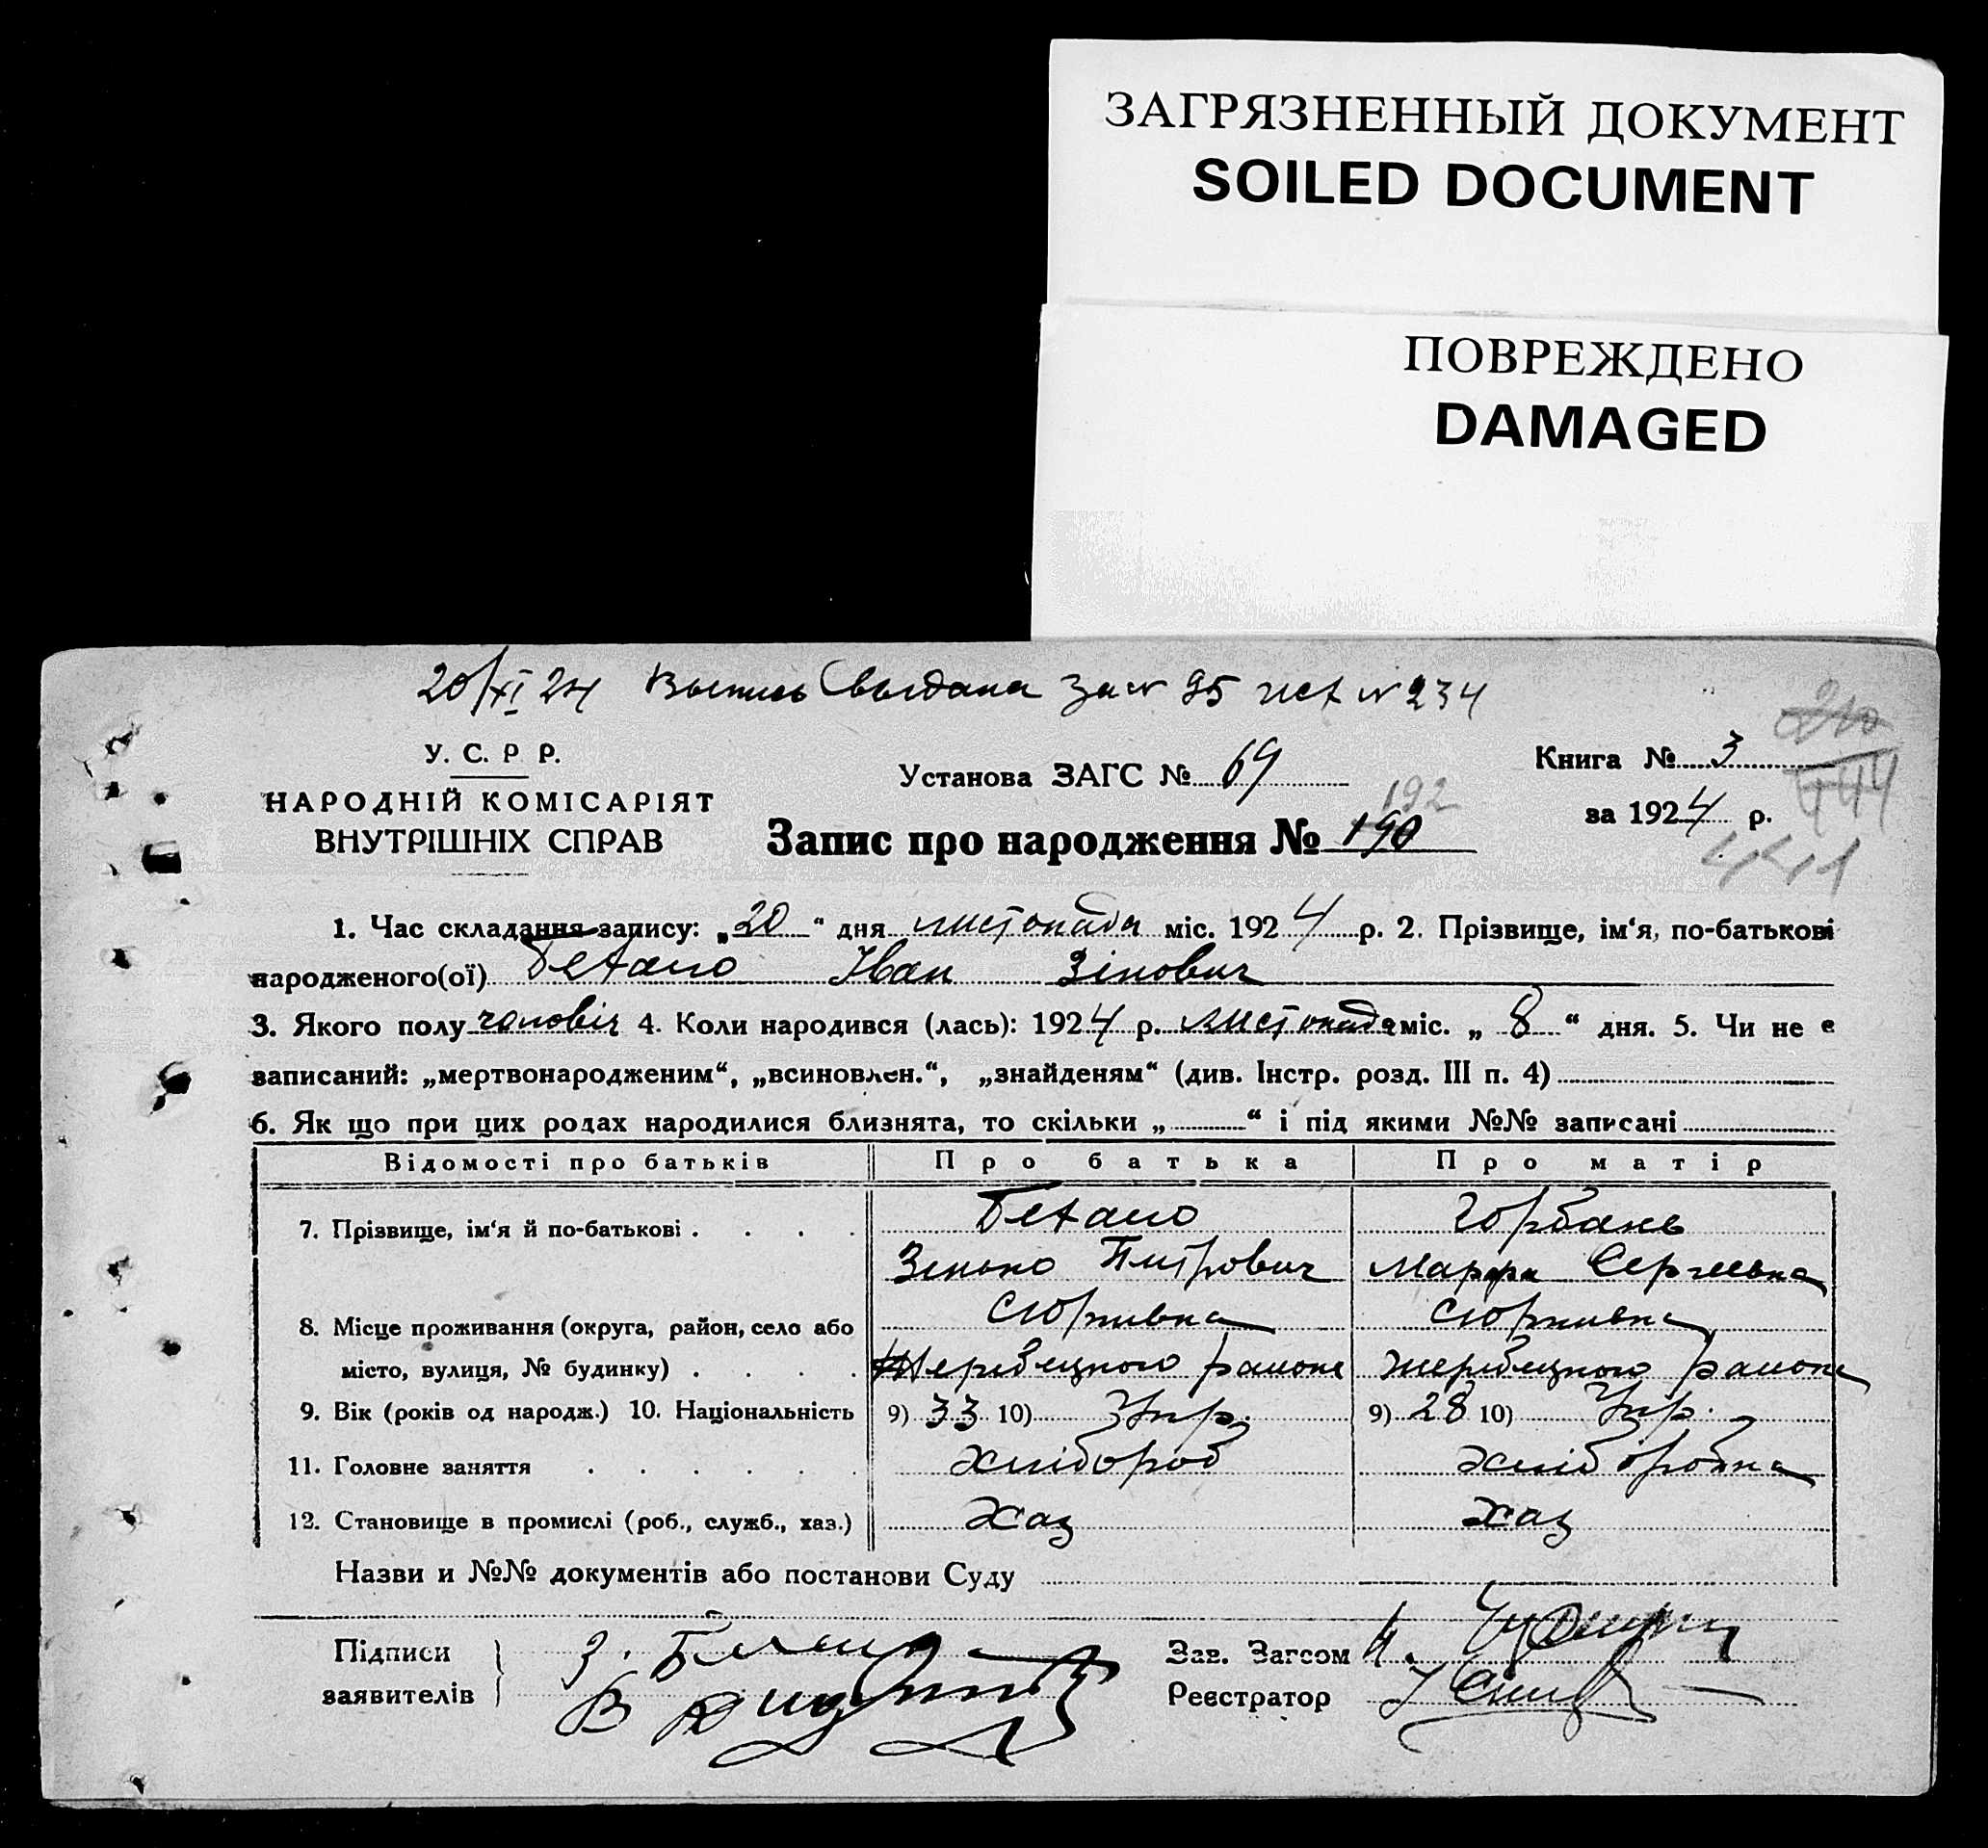 ЗАГРЯЗНЕННЫЙ ДОКУМЕНТ
SOILED DOCUMENT
ПОВРЕЖДЕНО
DAMAGED
20/XI 24 Выпись выдана за № 95 № 234
У. С. Р Р.
НАРОДНІЙ КОМІСАРІЯТ
ВНУТРІШНІХ СПРАВ
Установа ЗАГС № 69
Книга № 3
за 1924 р.
210
444
441
192
Запис про народження № 190
1. Час складання запису: „20“ дня листопада міс. 1924 р. 2. Прізвище, ім‘я, по-батькові
народженого(ої) Іван Зінович
3. Якого полу чоловіч 4. Коли народився (лась): 1924 р. листопада міс. „8“ дня. 5. Чи не є
записаний: „мертвонародженим“, „всиновлен.“, „знайденям“ (див. Інстр. розд. III п. 4)
6. Як що при цих родах народилися близнята, то скільки „ “ і під якими №№ записані
Відомості про батьків Про батька Про матір
7. Прізвище, ім‘я й по-батькові Горбань
Зінько Питрович Марфа Сергиевна
8. Місце проживання (округа, район, село або
місто, вулиця, № будинку) району району
9. Вік (років од народж.) 10. Національність 9) 33 10) Укр. 9) 28 10) Укр.
11. Головне заняття хлібороб хліборобка
12. Становище в промислі (роб., служб., хаз.) хаз хаз
Назви и №№ документів або постанови Суду
Підписи
заявителів
Зав. Загсом
Реєстратор